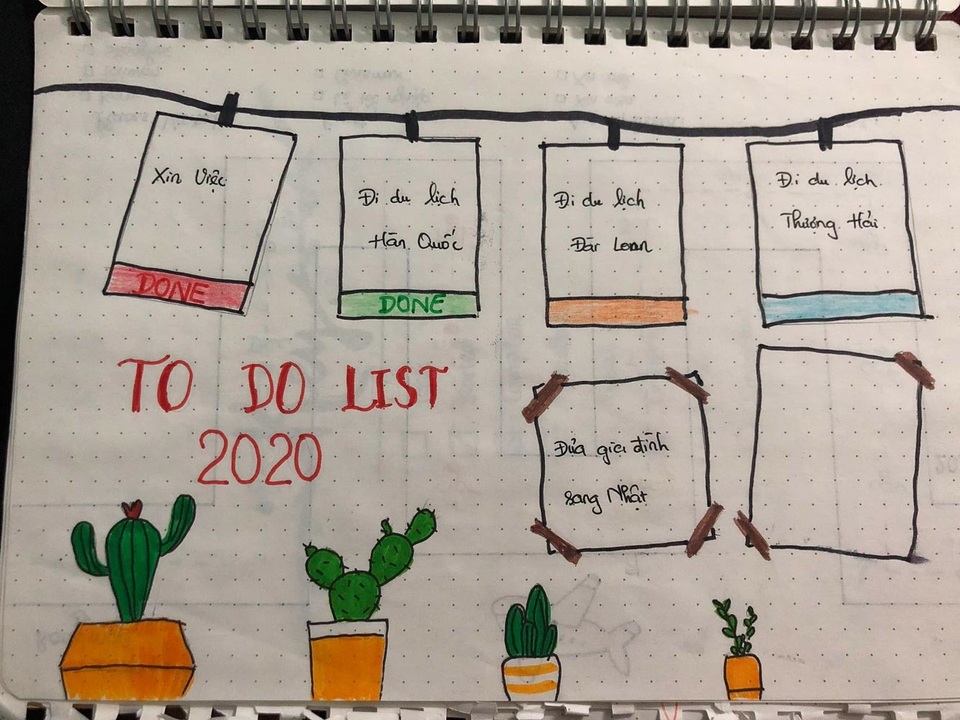 Xin Việc
DONE
Đi du lịch
Hàn Quốc
DONE
Đi du lịch
Đài Loan
Đi du lịch
Thượng Hải
TO DO LIST
2020
Đưa gia đình
sang Nhật